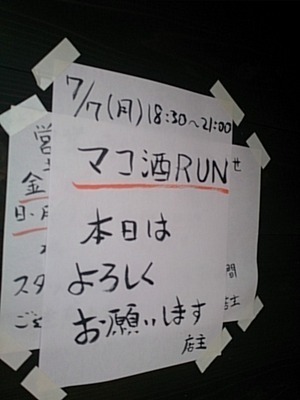 7/7(月)18:30〜21:00
マコ酒RUN
本日は
よろしく
お願いします
店主
営
金
日・月
スタ
ご
せ
間